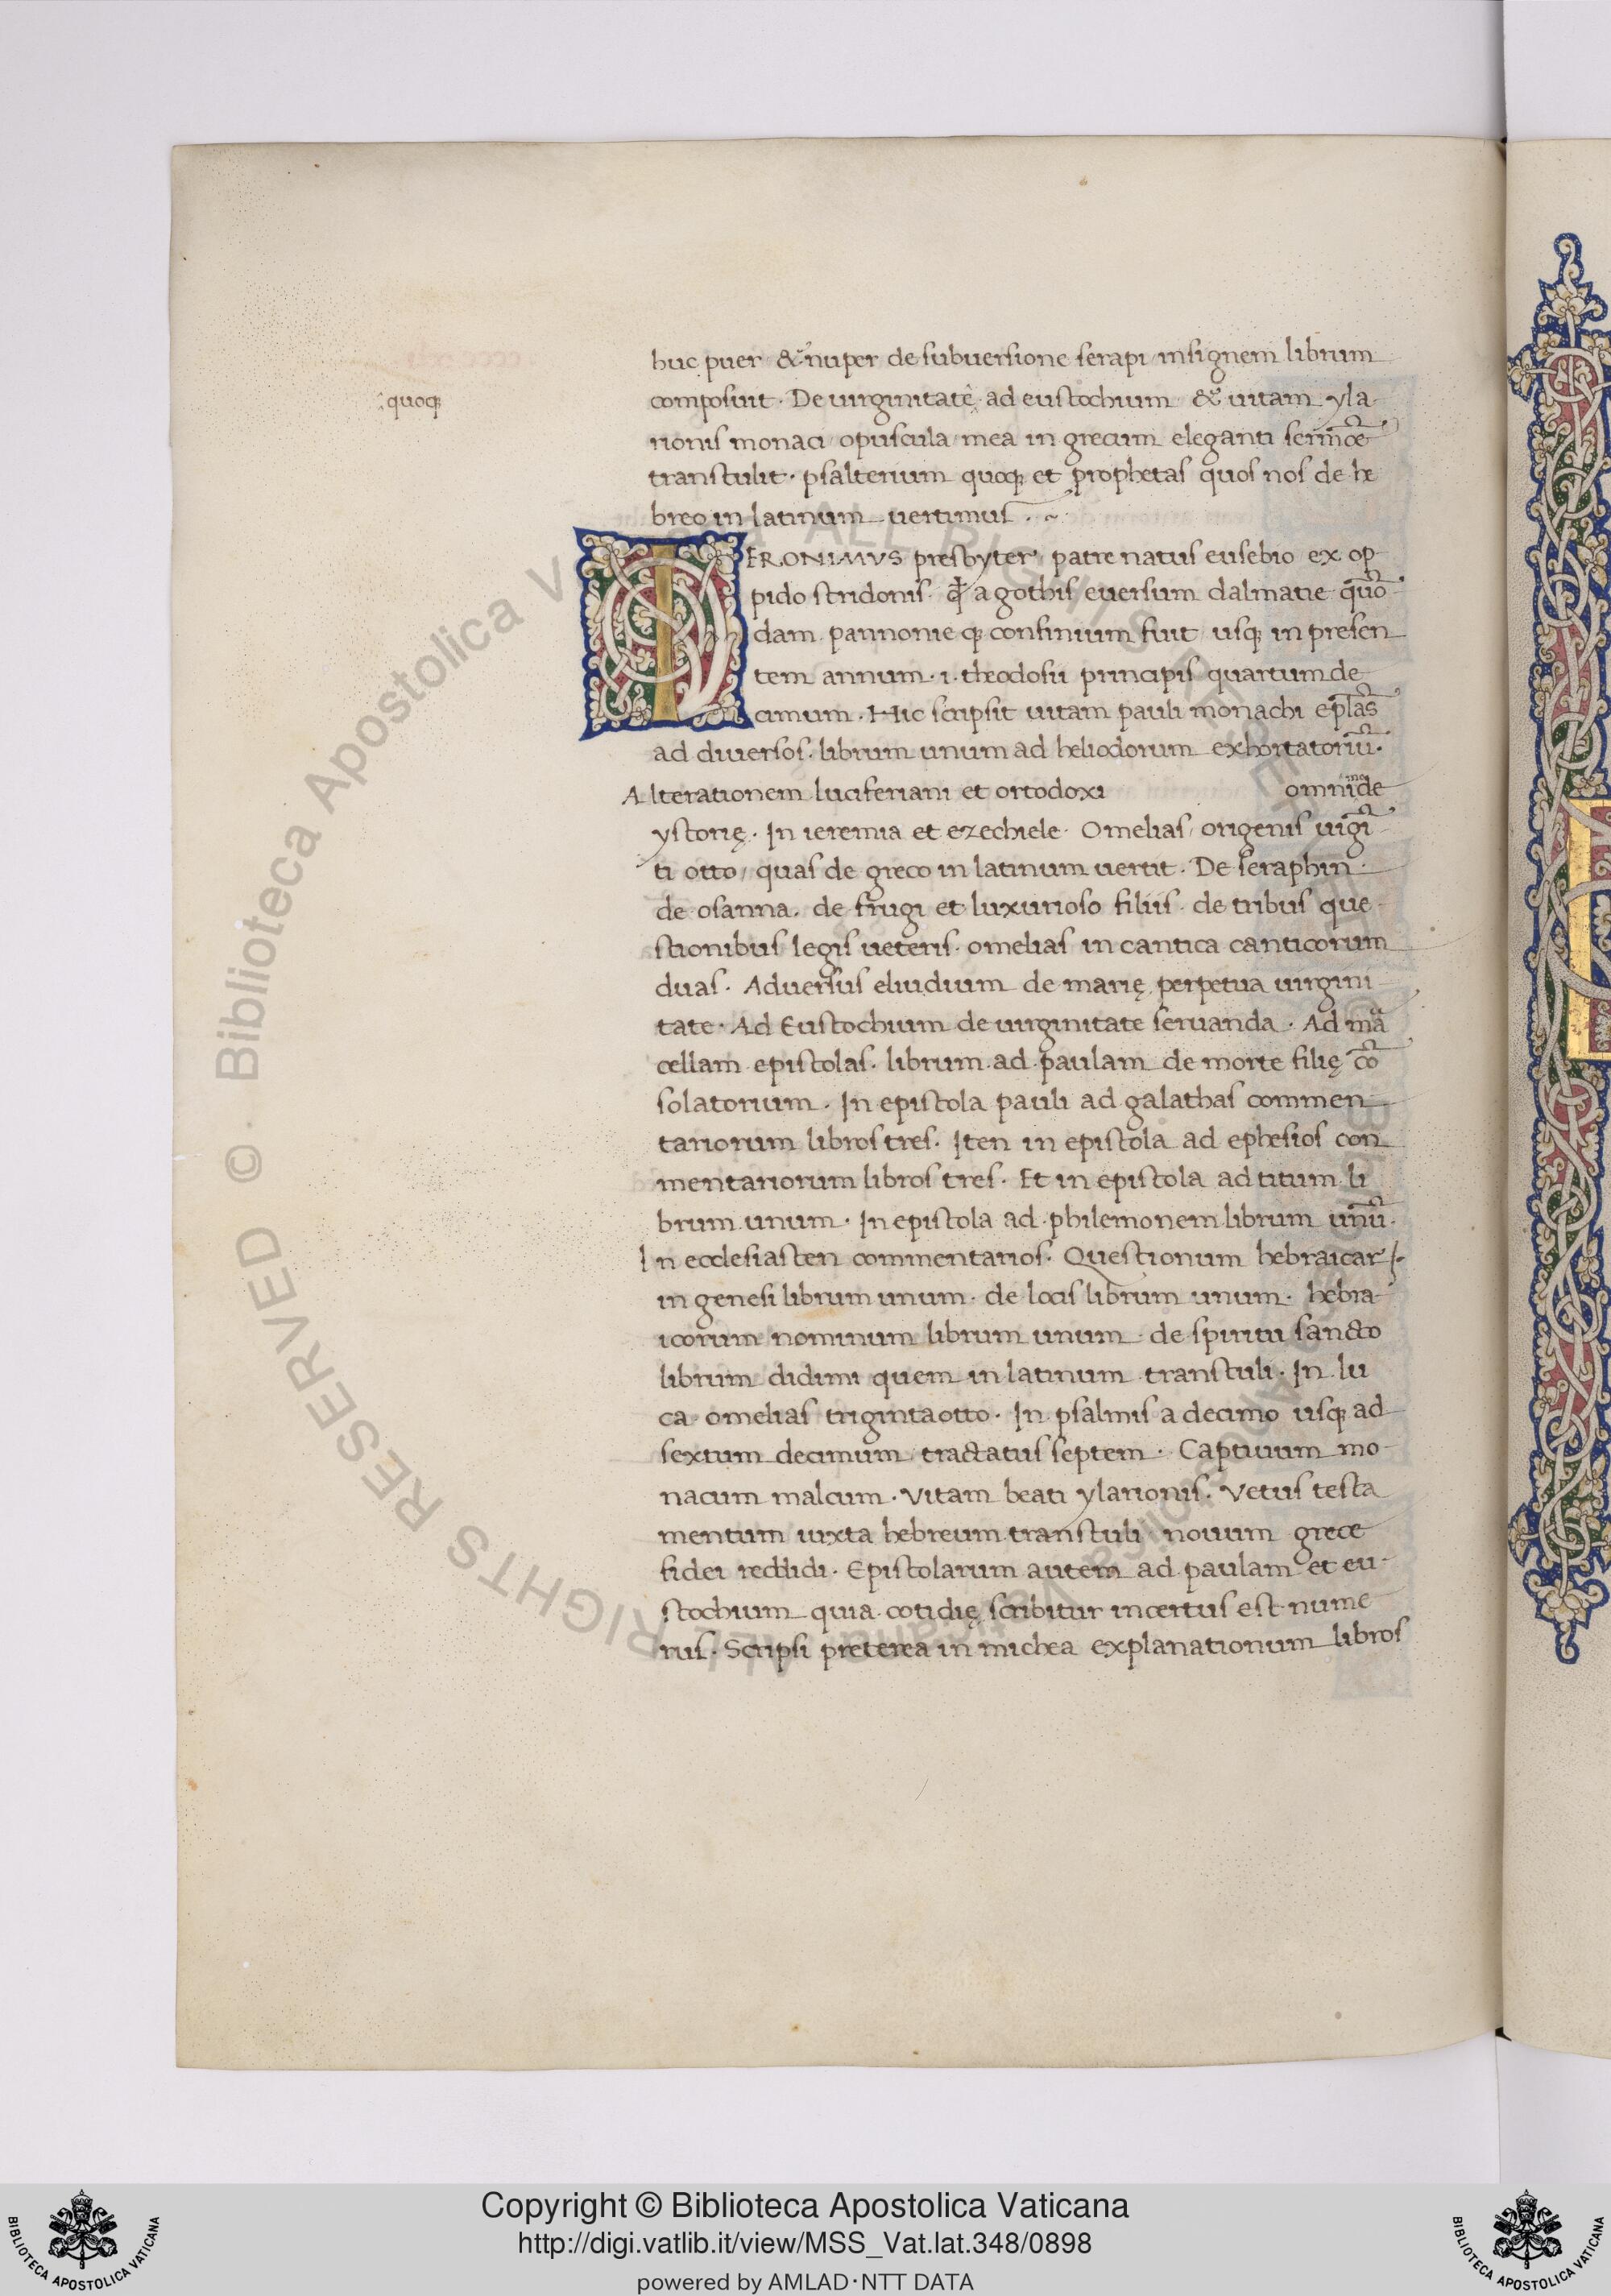 huc puer & nuper de subuersione serapi insignem librum
quoqꝫ
composuit · De uirginitate ad eustochium & uitam yla
rionis monaci opuscula mea in grecum eleganti sermōe
transtulit · psalterium quoqꝫ et prophetas quos nos de he
breo in latinum uertimus . ~
IERONIMVS presbyter patre natus eusebio ex op
pido stridonis · qđ a gothis euersum dalmatie quō
dam pannonie qꝫ confinium fuit usqꝫ in presen
tem annum · i · theodosii principis quartum de
cimum · Hic scripsit uitam pauli monachi epl̄as
ad diuersos · librum unum ad heliodorum exhortatoriū ·
Alterationem luciferiani et ortodoxi omnimode
ystorię · In ieremia et ezechiele · Omelias origenis uigī
ti otto / quas de greco in latinum uertit · De seraphin
de osanna · de frugi et luxurioso filiis · de tribus que
stionibus legis ueteris · omelias in cantica canticorum
duas · Aduersus eluidium de marię perpetua uirgini
tate · Ad Eustochium de uirginitate seruanda · Ad mā
cellam epistolas · librum ad paulam de morte filię cō
solatorium · In epistola pauli ad galathas commen
tariorum libros tres · Iten in epistola ad ephesios con
mentariorum libros tres · Et in epistola ad titum li
brum unum · In epistola ad philemonem librum unū ·
In ecclesiasten commentarios · Questionum hebraicarꝝ ·
in genesi librum unum · de locis librum unum · hebra
icorum nominum librum unum · de spiritu sancto
librum didimi quem in latinum transtuli · In lu
ca omelias triginta otto · In psalmis a decimo usqꝫ ad
sextum decimum tractatus septem · Captiuum mo
nacum malcum · Vitam beati ylarionis · Vetus testa
mentum iuxta hebreum transtuli nouum grece
fidei reddidi · Epistolarum autem ad paulam et eu
stochium quia cotidię scribitur incertus est nume
rus · Scripsi preterea in michea explanationum libros
© Biblioteca Apostolica Vaticana ALL RIGHTS RESERVED
Copyright © Biblioteca Apostolica Vaticana
http://digi.vatlib.it/view/MSS_Vat.lat.348/0898
powered by AMLAD·NTT DATA
BIBLIOTECA APOSTOLICA VATICANA
BIBLIOTECA APOSTOLICA VATICANA